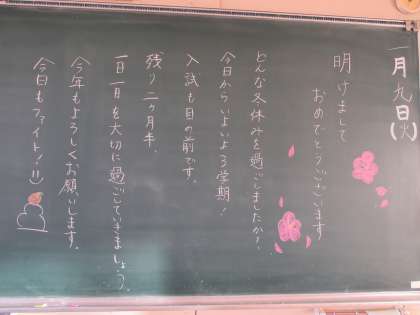 一月九日(火)
明けまして
おめでとうございます
どんな冬休みを過ごしましたか?
今日からいよいよ3学期!
入試も目の前です。
残り二ヶ月半、
一日一日を大切に過ごしていきましょう。
今年もよろしくお願いします。
今日もファイト!!